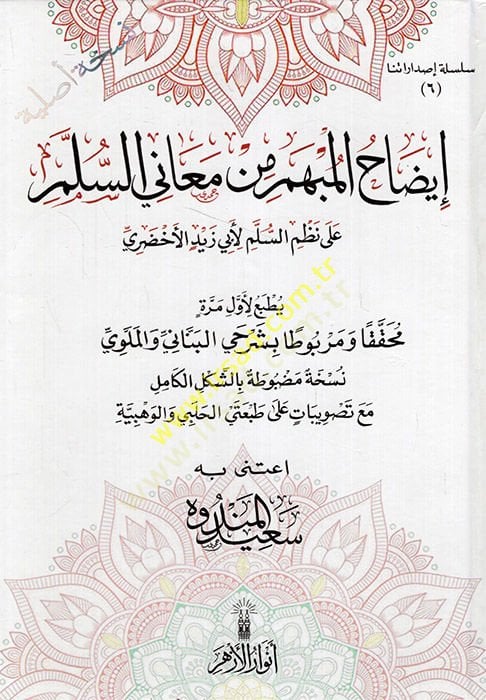 سلسلة إصداراتنا
(٦)
نسخة أصلية
إِيضَاحُ المُبْهَمِ مِنْ مَعَانِي السُّلَّمِ
عَلَى نَظْمِ السُّلَّمِ لِأَبِي زَيْدٍ الأَخْضَرِيّ
يُطْبَعُ لِأَوَّلِ مَرَّةٍ
مُحَقَّقًا وَمَرْبُوطًا بِشَرْحَيِ البَنَانِيّ وَالمَلَّوِيّ
نُسْخَةٌ مَضْبُوطَةٌ بِالشَّكْلِ الكَامِلِ
مَعَ تَصْوِيبَاتٍ عَلَى طَبْعَتَيِ الحَلَبِي وَالوَهْبِيَّةِ
اعتنى به
سَعِيد المَنْدُوه
أنوار الأزهر